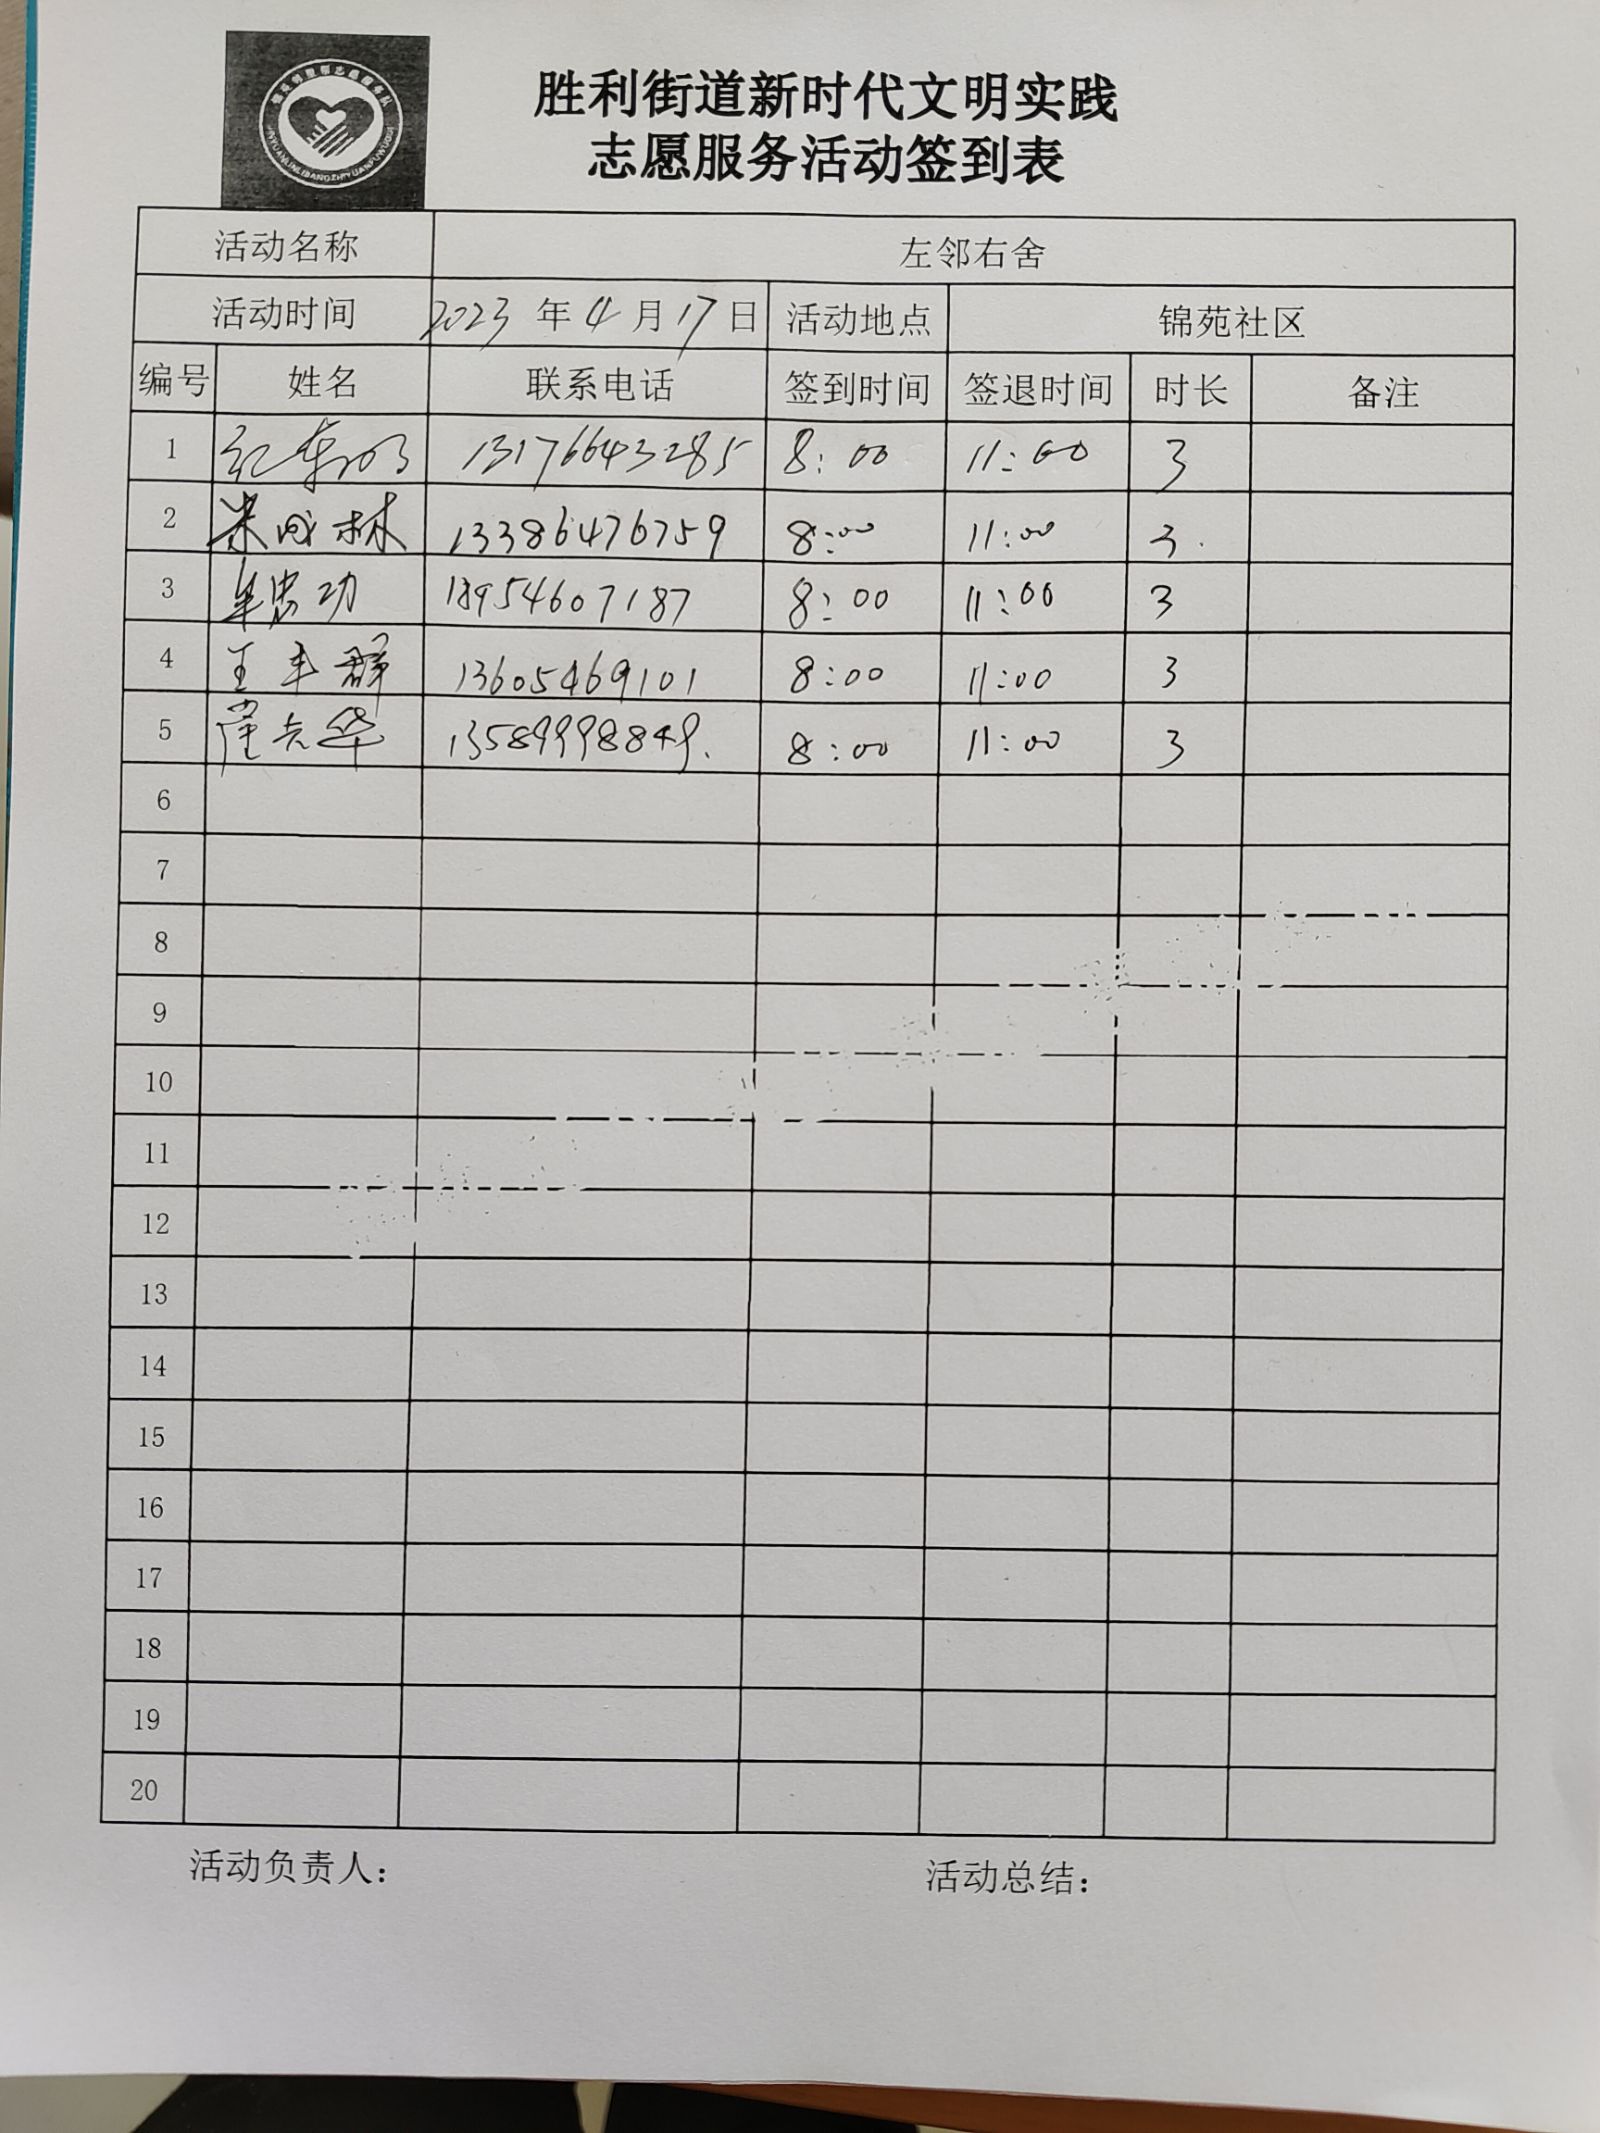 胜利街道新时代文明实践
志愿服务活动签到表
活动名称 左邻右舍
活动时间 2023 年 4 月 17 日 活动地点 锦苑社区
编号 姓名 联系电话 签到时间 签退时间 时长 备注
1 13176643285 8:00 11:00 3
2 林 13386476759 8:00 11:00 3
3 牟忠功 18954607187 8:00 11:00 3
4 王丰群 13605469101 8:00 11:00 3
5 华 13589998849 8:00 11:00 3
6
7
8
9
10
11
12
13
14
15
16
17
18
19
20
活动负责人： 活动总结：